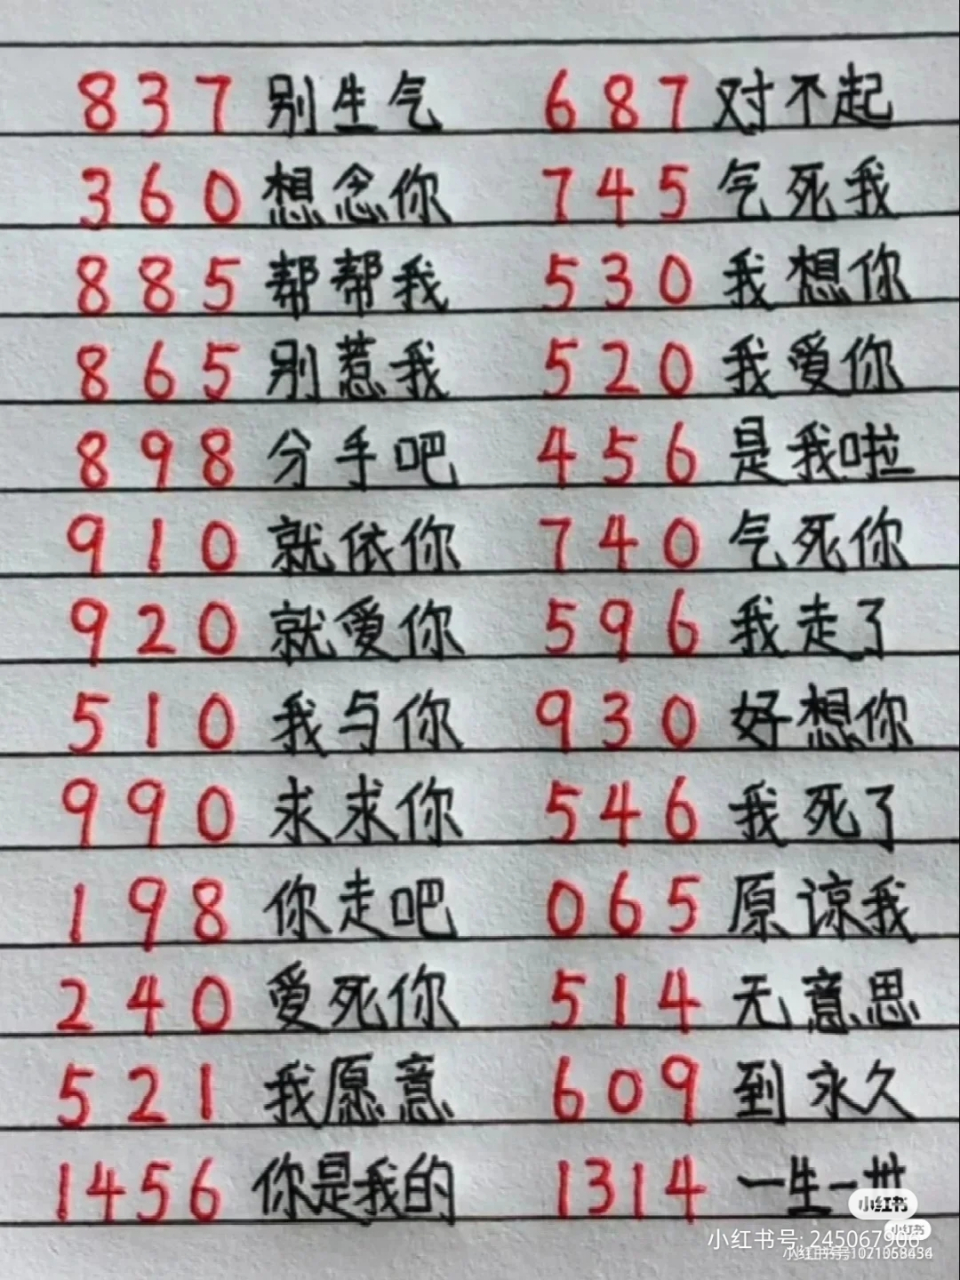 837 别生气 687 对不起
360 想念你 745 气死我
885 帮帮我 530 我想你
865 别惹我 520 我爱你
898 分手吧 456 是我啦
910 就依你 740 气死你
920 就爱你 596 我走了
510 我与你 930 好想你
990 求求你 546 我死了
198 你走吧 065 原谅我
240 爱死你 514 无意思
521 我愿意 609 到永久
1456 你是我的 1314 一生一世
小红书
小红书
小红书号: 245067906